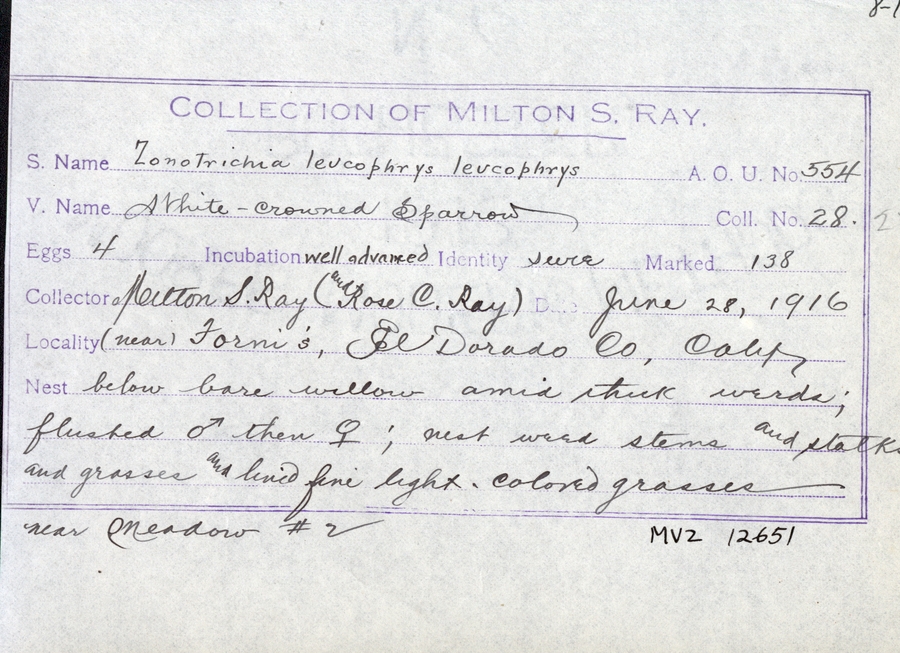 COLLECTION OF MILTON S. RAY.
S. Name Zonotrichia leucophrys leucophrys A. O. U. No. 554
V. Name White-crowned Sparrow Coll. No. 28.
Eggs 4 Incubation well advanced Identity sure Marked 138
Collector Milton S. Ray (and Rose C. Ray) Date June 28, 1916
Locality (near) Forni's, El Dorado Co, Calif
Nest below bare willow amid thick weeds;
flushed ♂ then ♀; nest weed stems and stalks
and grasses and lined fine light-colored grasses
near Meadow #2
MVZ 12651